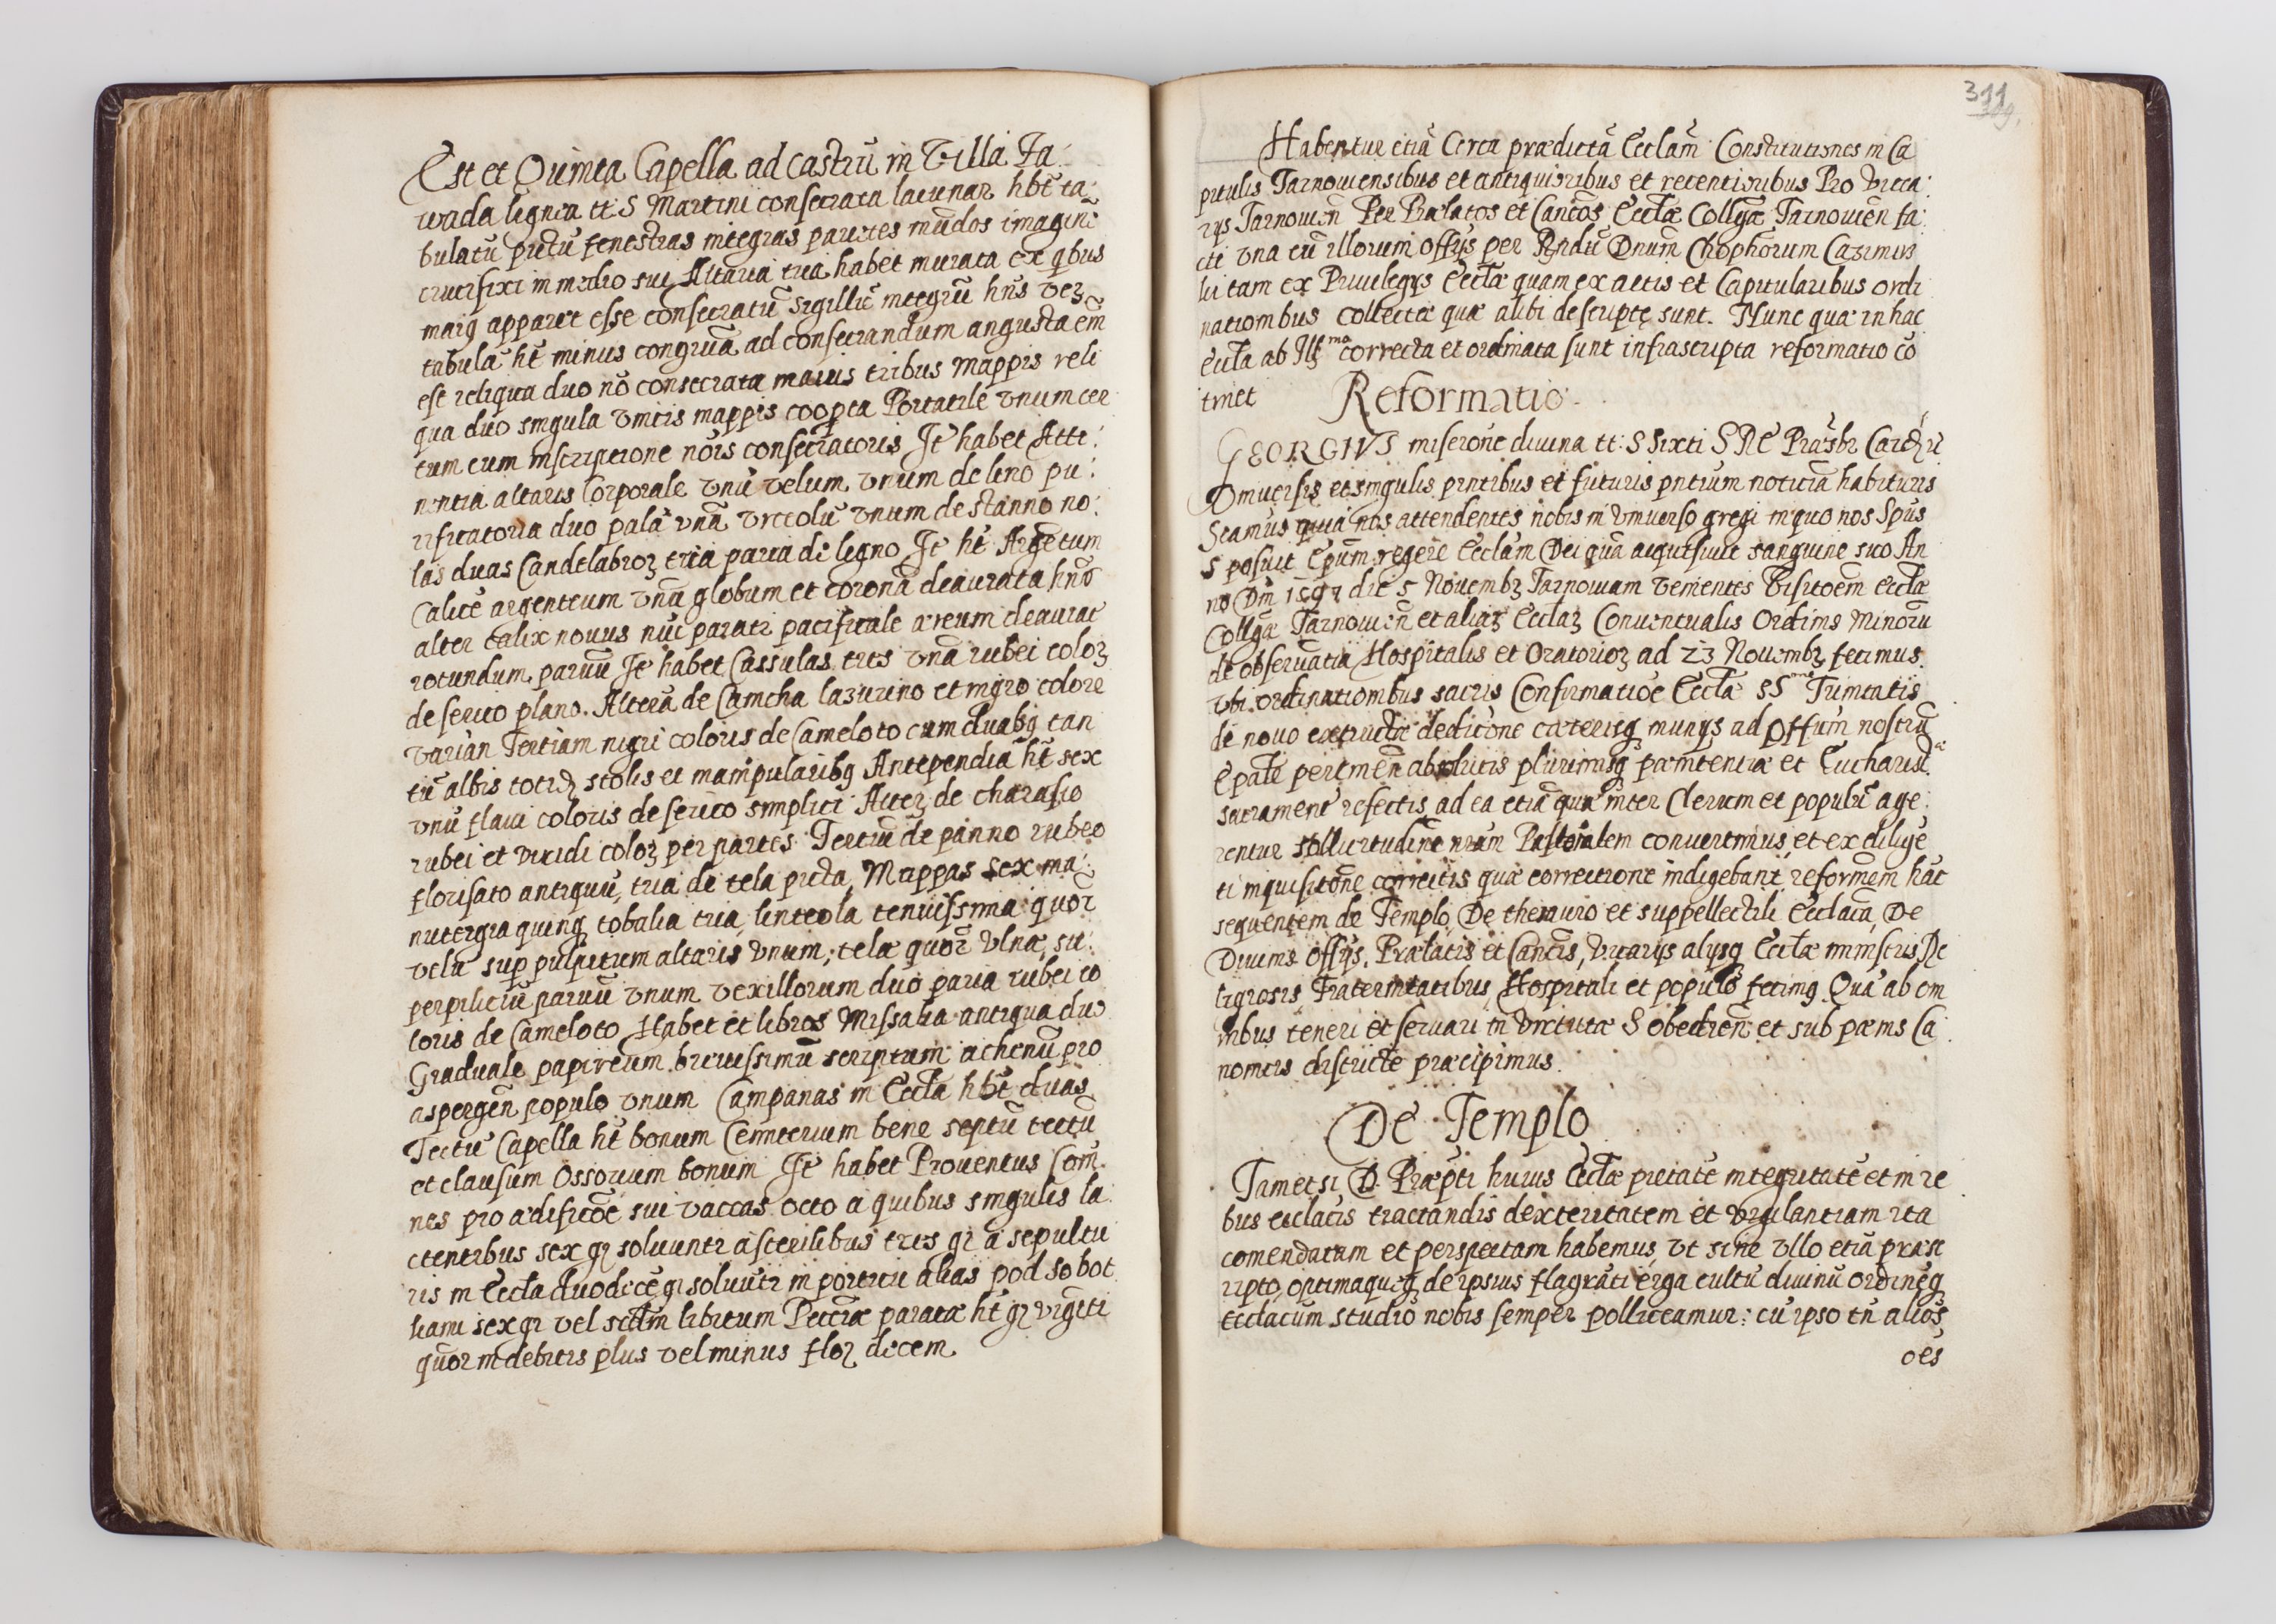 Est et Quinta Capella ad castrū in Villa Za:
wada lignea tt: S Martini consecrata lacunar hb̄t ta:
bulatū pictū fenestras integras parietes mūdos imaginē
crucifixi in medio sui Altaria tria habet murata ex qbus
maiꝗ apparet esse consecratū sigillū integrū hn̄s verꝫ
tabula ht̄ minus congruā ad consecrandum angusta em̄
est reliqua duo nō consecrata maius tribus mappis reli
qua duo singula vnicis mappis coop̄ta Portatile vnum cer
tum cum inscriptione nōis consecratoris It̄ habet Atti:
nentia altaris Corporale vnū velum vnum de lino pu:
rificatoria duo palā vnā vrceolū vnum de stanno no:
las duas Candelabroꝝ tria paria de ligno It̄ ht̄ Argētum
Calicē argenteum vnū globum et coronā deaurata hn̄s
alter calix novus nūc parati pacificale æreum deaurat
rotundum paruū It̄ habet Cassulas tres vnā rubei coloꝝ
de serico plano. Alterā de Camcha lazurino et nigro colore
varian Tertiam nigri coloris de Cameloto cum duabꝗ tan
tū albis totiꝺ stolis et manipularibꝗ Antependia ht̄ sex
vnū flaui coloris de serico simplici Alterꝫ de charasio
rubei et viridi coloꝝ per partes Tertiū de panno rubeo
florisato antiquū, tria de tela picta, Mappas sex ma:
nutergia quinꝗ tobalia tria, linteola tenuissima quor̄
vela sup̄ pulpitum altaris vnum, telæ quor̄ vlnæ, su:
perpiliciū paruū vnum vexillorum duo paria rubei co
loris de Cameloto Habet et libros Missalia antiqua duo
Graduale papireum breuissimū scriptum achenū pro
aspergen̄ populo vnum Campanas in Eccl̄a hb̄t duas
Tectū Capella ht̄ bonum Cemiterium bene septū tectū
et clausum Ossorium bonum It̄ habet Prouentus Com̄:
nes pro ædificōe sui vaccas octo a quibus singulis la:
ctentibus sex gr̄ soluuntr a sterilibus tres gr̄ a sepultu
ris in Eccl̄a duodecē gr̄ soluūtr in porticu alias pod sobot
kami sex gr̄ vel scd̄m libitum Pecciæ paratæ ht̄ gr̄ vigīti
quor̄ in debitis plus vel minus floꝝ decem
311
309.
Habentur etiā Circa prædictā Eccl̄am Constitutiones in Ca
pitulis Tarnouiensibus et antiquioribus et recentioribus Pro vica:
rijs Tarnouien̄ Per Prælatos et Canc̄os Eccl̄æ Collḡæ Tarnouien̄ fa:
cti vna cū illorum officijs per Rn̄dū Dnūm Chr̄ophorum Cazimirs
lui tam ex Priuilegijs Eccl̄æ quam ex actis et Capitularibus ordi
nationibus collectæ quæ alibi descriptę sunt. Nunc quæ in hac
Eccl̄a ab Ill^ma correcta et ordinata sunt infrascripta reformatio cō
tinet
Reformatio.
GEORGIVS miserōne diuina tt: S Sixti SRE Præsbr̄ Cardꝝ
Vniuersis et singulis pn̄tibus et futuris pn̄tium noticiā habituris
Scimus quia nos attendentes nobis in vniuerso gregi in quo nos Spūs
S posuit Ep̄um regere Eccl̄am Dei quā acquisiuit sanguine suo An
no Dn̄i 1597 die 5 Nouembꝝ Tarnouiam venientes Visitōem eccl̄æ
Collgæ Tarnouien̄ et aliaꝝ Eccl̄aꝝ Conuentualis Ordinis Minorū
de obseruātia Hospitalis et Oratorioꝝ ad 23 Nouembꝝ fecimus.
vbi ordinationibus sacris Confirmatiōe Eccl̄æ SS^mæ Trinitatis
de nouo extructæ dedicōne cæterisꝗ munijs ad Offūm nostrū
Epāle pertinēn absolutis plurimisꝗ pœnitentiæ et Eucharist^æ
sacramenti refectis, ad ea etiā quæ inter Clerum et populū age:
rentur sollicitudinē nrām Pastoralem conuertimus, et ex dilige
ti inquisitōne correctis quæ correctione indigebant reformēm hāc
sequentem de Templo, De thesauro et suppellectili Eccl̄aca, De
Diuinis Offijs, Prælatis et Canc̄is, Vicarijs alijsꝗ Eccl̄æ ministris, Re
ligiosis, Fraternitatibus, Hospitali et populo fecimꝗ. Quā ab om
nibus teneri et seruari in virtute S obedien̄ et sub pœnis Ca
nonicis districte præcipimus.
De Templo
Tametsi D. Præpti huius Eccl̄æ pietatē integritatē et in re
bus eccl̄acis tractandis dexteritatem et vigilantiam ita
comendatam et perspectam habemus, vt sine vllo etiā præsc
ripto, optimaquęꝗ de ipsius flagrāti erga cultū diuinū ordinēꝗ
eccl̄acūm studio nobis semper polliceamur: cū ipso tn̄ alios
oēs